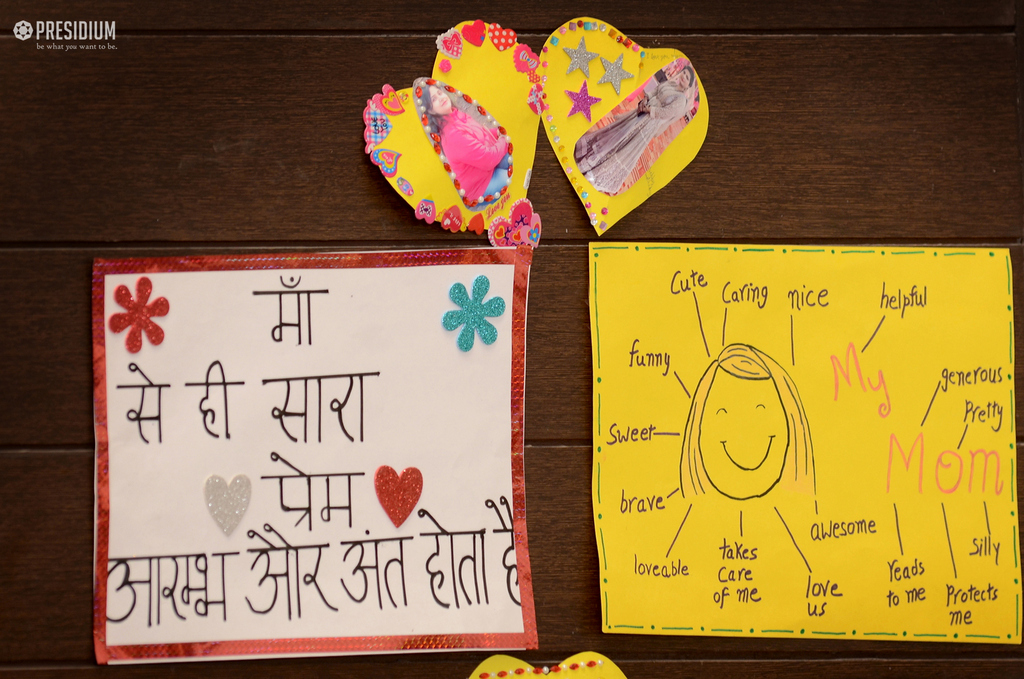 PRESIDIUM
be what you want to be.
love you
माँ
से ही सारा
प्रेम
आरम्भ और अंत होता है
Cute
Caring
nice
helpful
funny
My
generous
Pretty
Sweet
Mom
brave
awesome
loveable
takes
care
of me
love
us
reads
to me
Protects
me
Silly